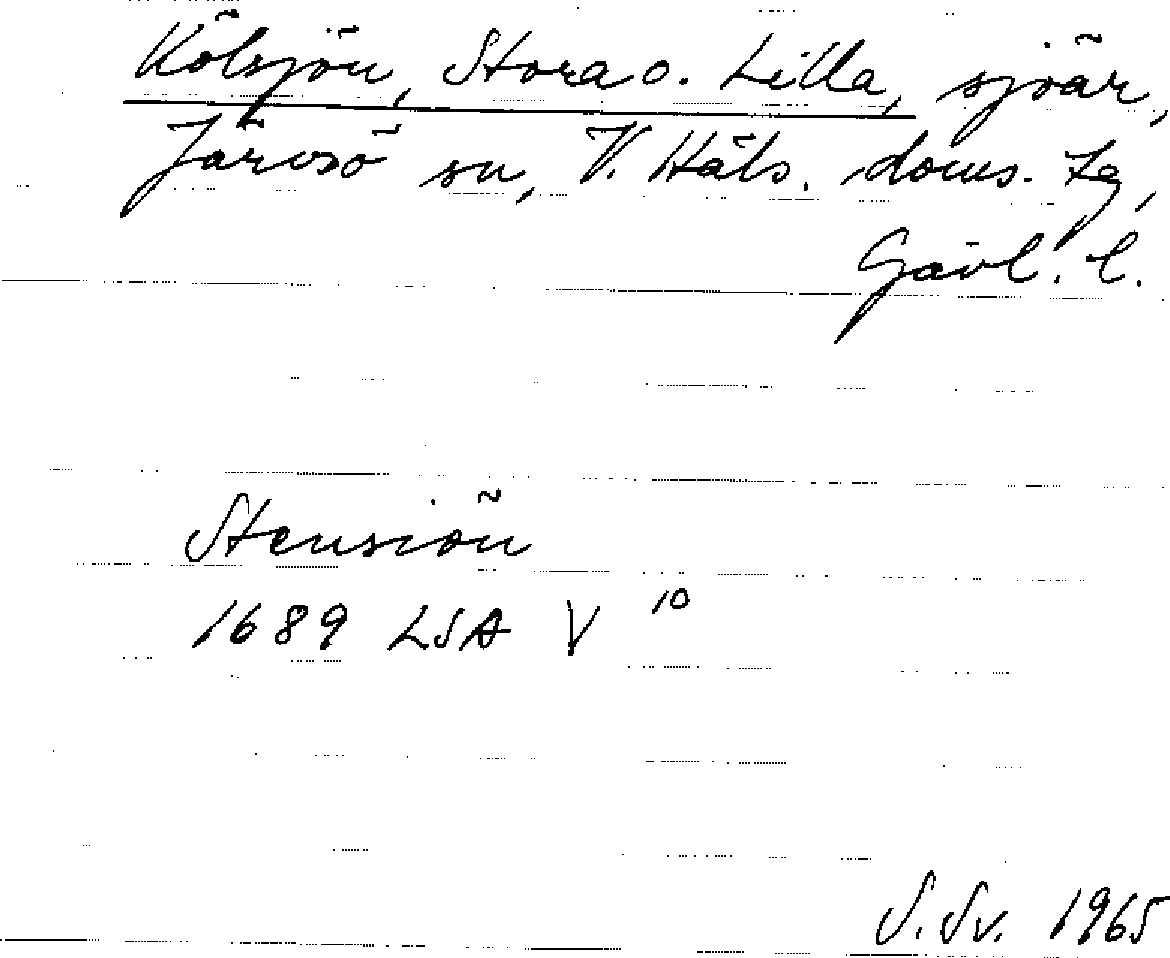 Kölsjön, Stora o. Lilla, sjöar,
Järvsö sn, V. Häls. doms. tg,
Gävl. l.
Stensiön
1689 LSA V 10
S. Sv. 1965